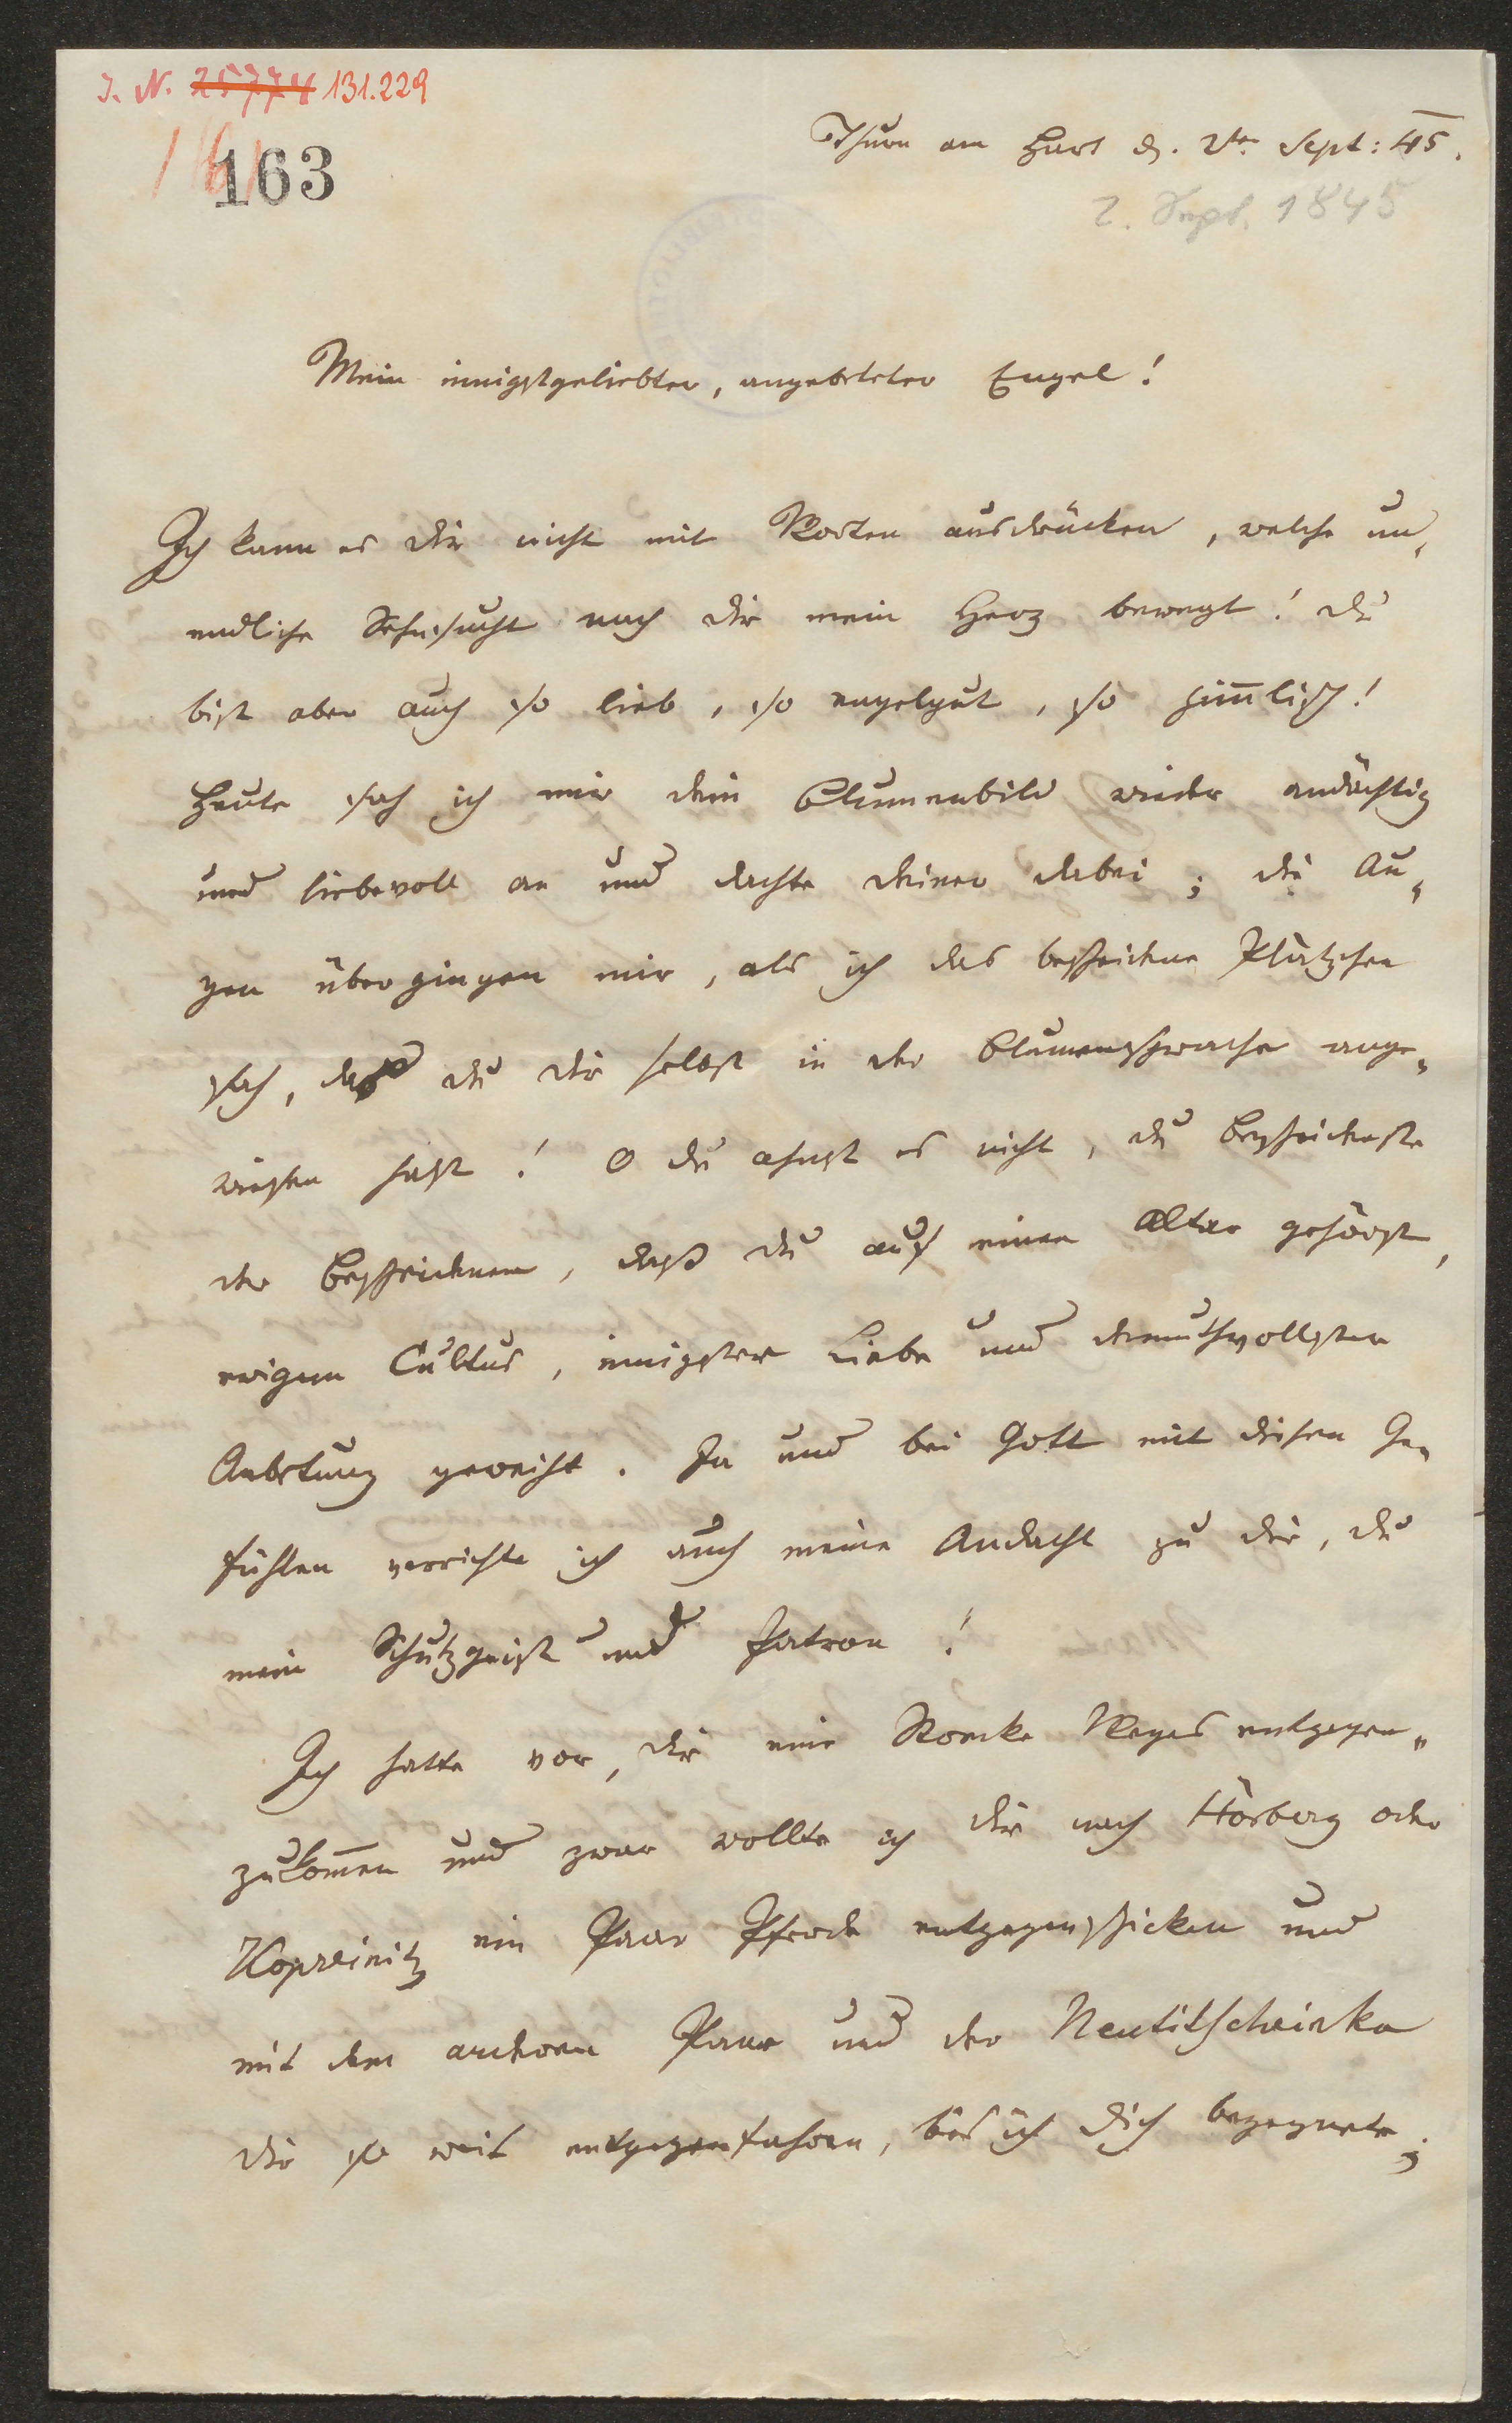 J. N. 25774 131.229
163
Thurn am Hart d. 2t. Sept: 45.
2. Sept. 1845
Mein innigstgeliebter, angebeteter Engel!
Ich kann es dir nicht mit Worten ausdrücken, welche un„
endliche Sehnsucht nach dir mein Herz bewegt! Du
bist aber auch so lieb, so engelgut, so him̅lisch!
Heute sah ich mir dein Blumenbild wieder andächtig
und liebevoll an und dachte deiner dabei; die Au„
gen übergingen mir, als ich das bescheidne Plätzchen
sah, das du dir selbst in der Blumensprache ange„
wiesen hast! O du ahnst es nicht, du Bescheidenste
der Bescheidenen, daß du auf einen Altar gehörst,
ewigem Cultus, innigster Liebe und demuthvollster
Anbetung geweiht. Ja und bei Gott mit diesen Ge„
fühlen verrichte ich auch meine Andacht zu dir, du
mein Schutzgeist und Patron!
Ich hatte vor, dir eine Strecke Weges entgegen„
zukom̅en und zwar wollte ich dir nach Hörberg oder
Kopreinitz ein Paar Pferde entgegenschicken und
mit dem anderen Paar und der Neutitscheinka
dir so weit entgegenfahren, bis ich dich begegnete;